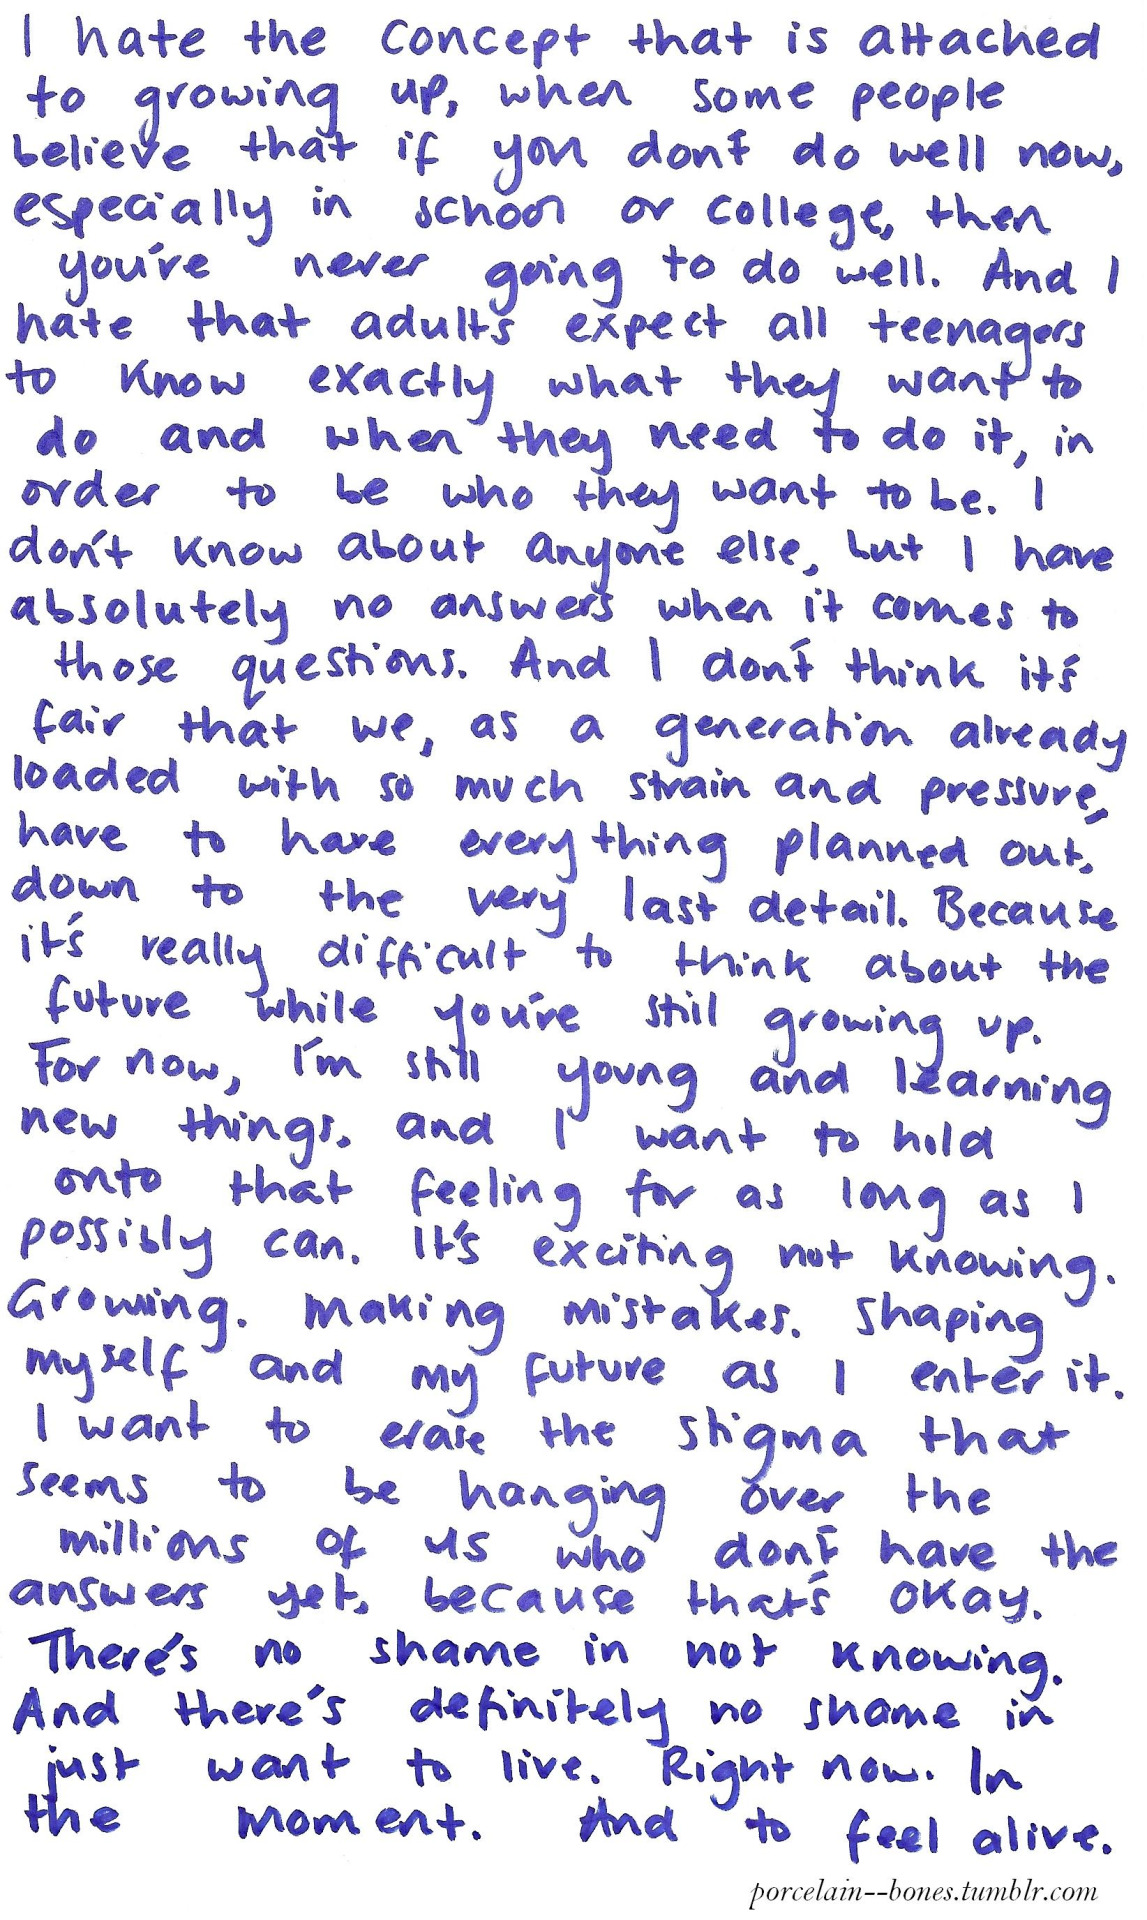 I hate the concept that is attached
to growing up, when some people
believe that if you don't do well now,
especially in school or college, then
you're never going to do well. And I
hate that adults expect all teenagers
to know exactly what they want to
do and when they need to do it, in
order to be who they want to be. I
don't know about anyone else, but I have
absolutely no answers when it comes to
those questions. And I don't think it's
fair that we, as a generation already
loaded with so much strain and pressure,
have to have everything planned out,
down to the very last detail. Because
it's really difficult to think about the
future while you're still growing up.
For now, I'm still young and learning
new things, and I want to hold
onto that feeling for as long as I
possibly can. It's exciting not knowing.
Growing. Making mistakes. Shaping
myself and my future as I enter it.
I want to erase the stigma that
seems to be hanging over the
millions of us who don't have the
answers yet, because that's okay.
There's no shame in not knowing.
And there's definitely no shame in
just want to live. Right now. In
the moment. And to feel alive.
porcelain--bones.tumblr.com